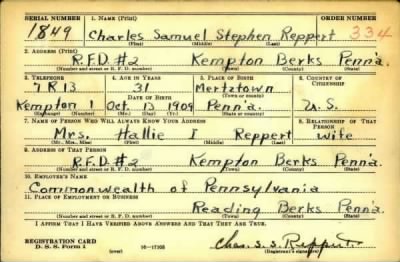 SERIAL NUMBER 1. NAME (Print) ORDER NUMBER
1849 Charles Samuel Stephen Reppert 334
(First) (Middle) (Last)
2. ADDRESS (Print)
R.F.D. #2 Kempton Berks Penn'a.
(Number and street or R. F. D. number) (Town) (County) (State)
3. TELEPHONE 4. AGE IN YEARS 5. PLACE OF BIRTH 6. COUNTRY OF CITIZENSHIP
7 R 13 31 Mertztown
DATE OF BIRTH
Kempton 1 Oct. 13 1909 Penn'a. U.S.
(Exchange) (Number) (Mo.) (Day) (Yr.) (State or country)
7. NAME OF PERSON WHO WILL ALWAYS KNOW YOUR ADDRESS 8. RELATIONSHIP OF THAT PERSON
Mrs. Hallie I Reppert wife
(Mr., Mrs., Miss) (First) (Middle) (Last)
9. ADDRESS OF THAT PERSON
R.F.D. #2 Kempton Berks Penn'a.
(Number and street or R. F. D. number) (Town) (County) (State)
10. EMPLOYER'S NAME
Commonwealth of Pennsylvania
11. PLACE OF EMPLOYMENT OR BUSINESS
Reading Berks Penn'a.
(Number and street or R. F. D. number) (Town) (County) (State)
I AFFIRM THAT I HAVE VERIFIED ABOVE ANSWERS AND THAT THEY ARE TRUE.
REGISTRATION CARD
D. S. S. Form 1 (over) 16—17105 Chas. S. S. Reppert
(Registrant's signature)